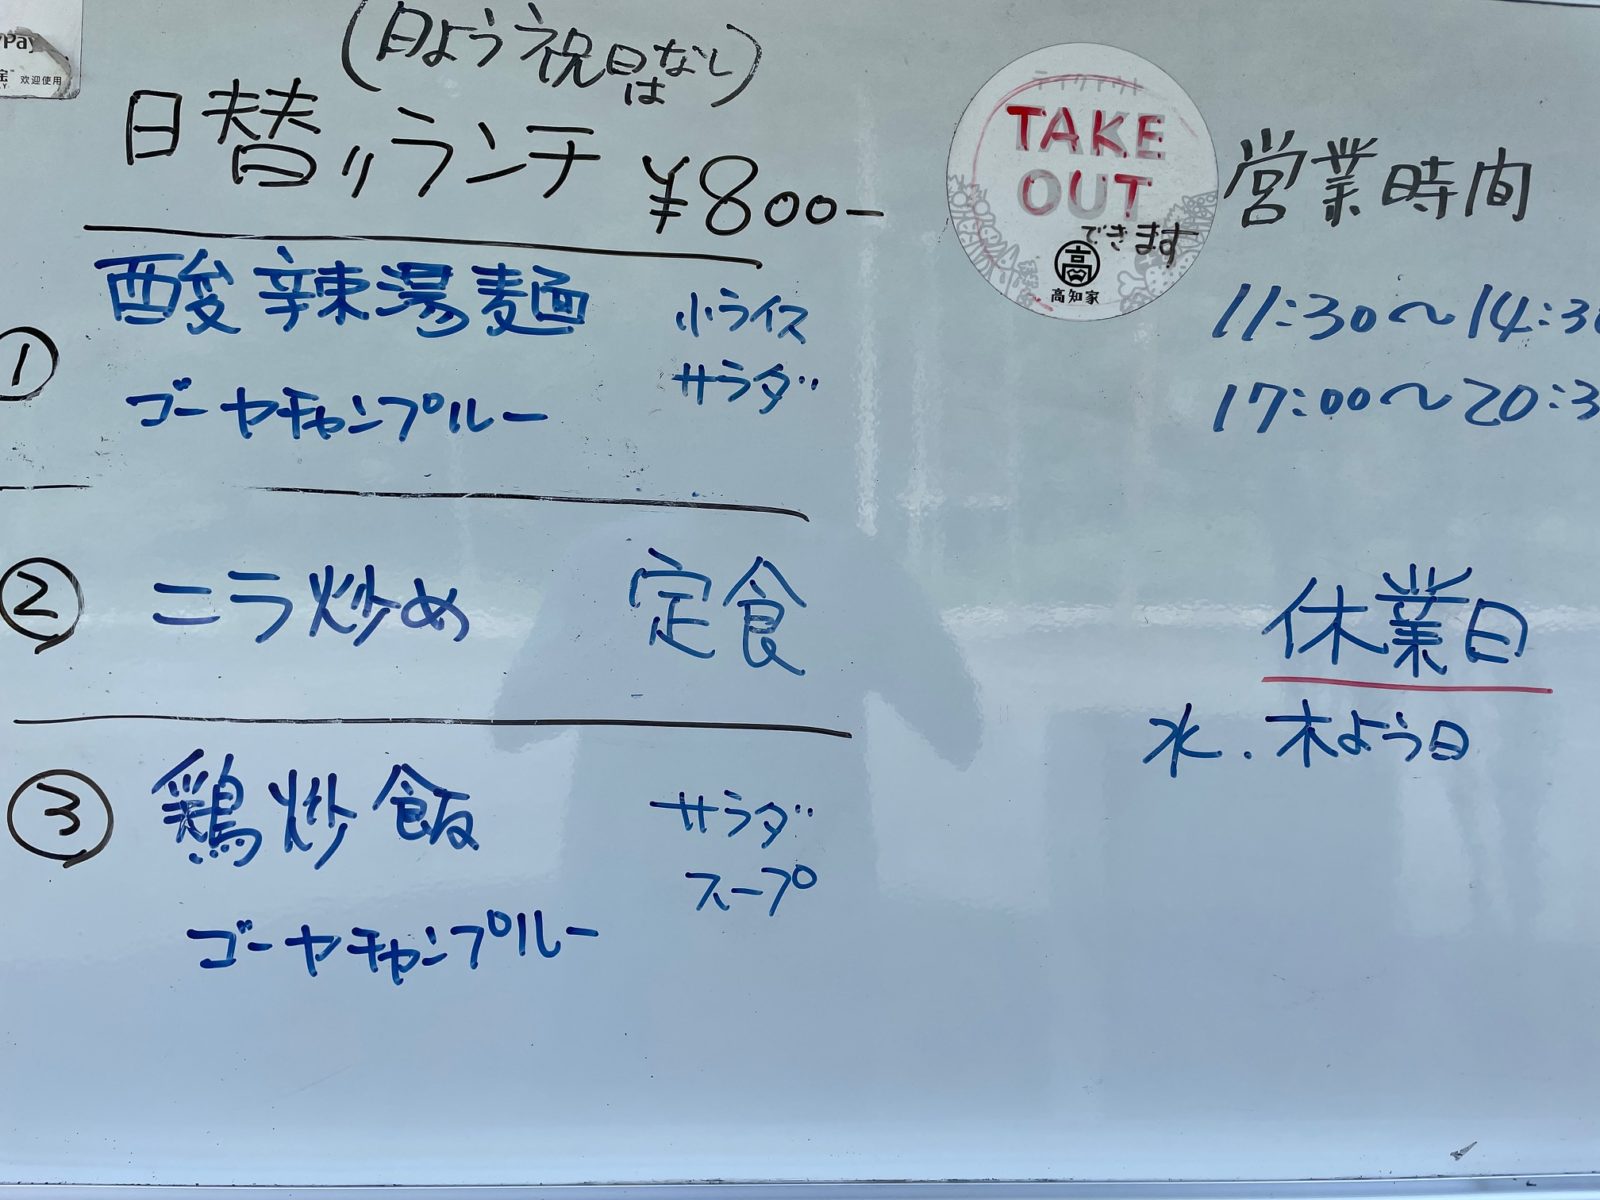 Pay
欢迎使用
(日よう祝日はなし)
日替りランチ ¥800-
① 酸辣湯麺 小ライス
サラダ
ゴーヤチャンプルー
② ニラ炒め 定食
③ 鶏炒飯 サラダ
スープ
ゴーヤチャンプルー
テイクアウト
TAKE
OUT
できます
高知家
営業時間
11:30〜14:30
17:00〜20:3
休業日
水.木よう日